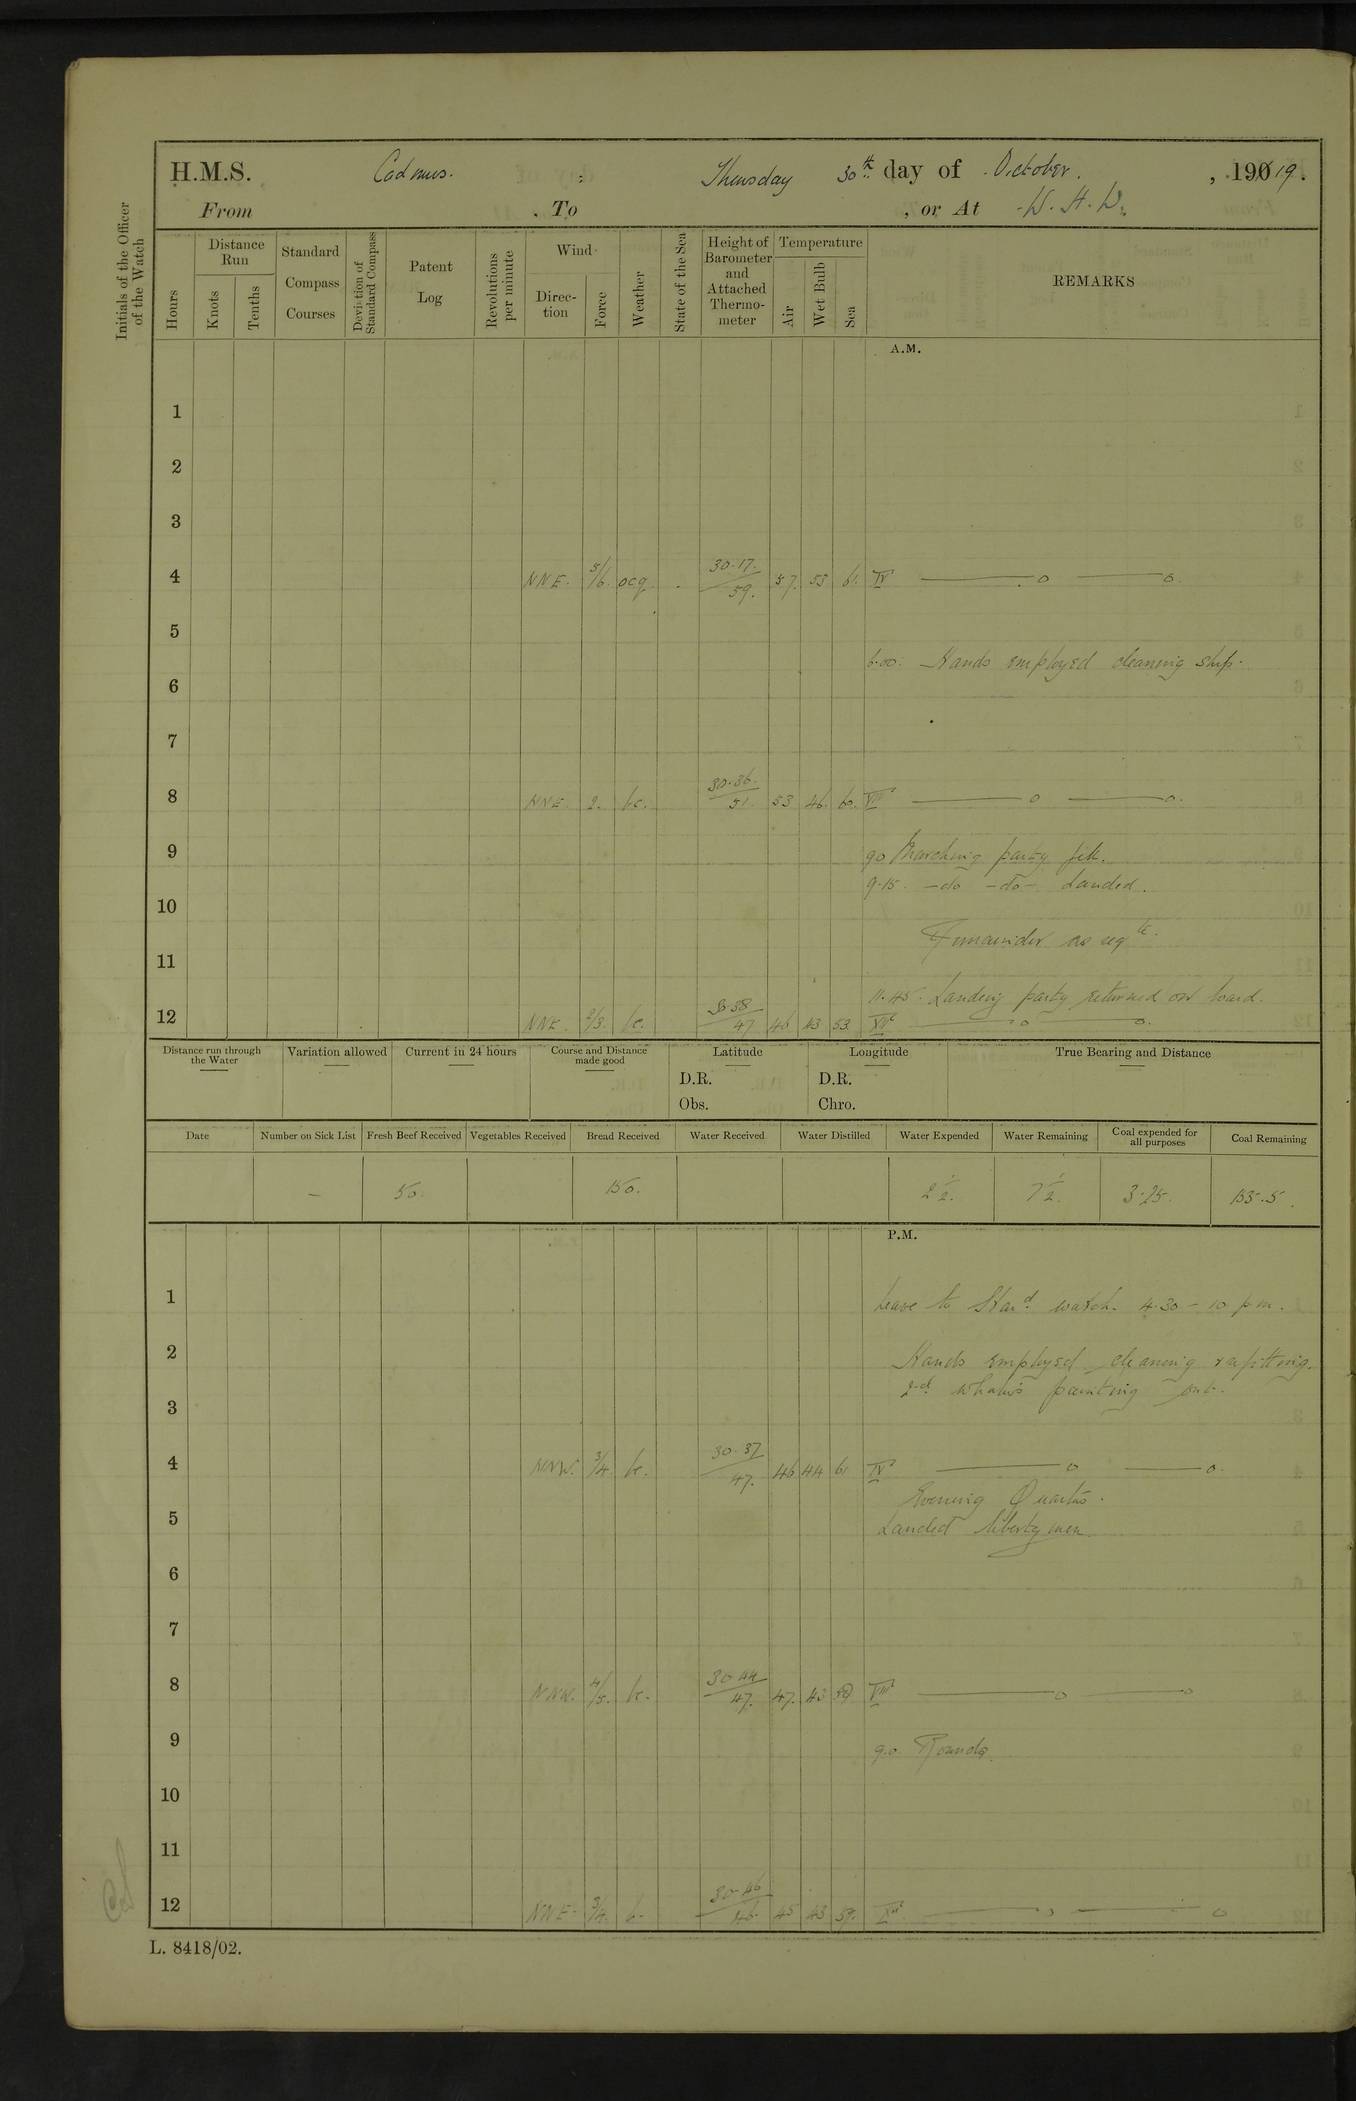 H.M.S. Cadmus. Thursday 30th day of October, 1919.
From , To , or At W. H. W.
Initials of the Officer of the Watch
Hours
Distance Run
Knots
Tenths
Standard Compass Courses
Deviation of Standard Compass
Patent Log
Revolutions per minute
Wind
Direction
Force
Weather
State of the Sea
Height of Barometer and Attached Thermometer
Temperature
Air
Wet Bulb
Sea
REMARKS
A.M.
1
2
3
4 NNE. 5/6. ocq 30.17. 59. 57. 55 61. IV
5
6.00. Hands employed cleaning ship.
6
7
8 NNE. 2. bc. 30.36. 51. 53 46. 60. VIII
9
9.0 Marching party fell.
9.15. -do -do- Landed.
10
Remainder as reqte.
11
11.45. Landing party returned on board.
12 NNE. 2/3. bc. 30.38 47 46 43 53. XII
Distance run through the Water
Variation allowed
Current in 24 hours
Course and Distance made good
Latitude
D.R.
Obs.
Longitude
D.R.
Chro.
True Bearing and Distance
Date Number on Sick List Fresh Beef Received Vegetables Received Bread Received Water Received Water Distilled Water Expended Water Remaining Coal expended for all purposes Coal Remaining
- 50. 150. 2½. 7½. 3.25. 135.5.
P.M.
1 Leave to Stard. watch. 4.30 - 10 p.m.
2 Hands employed cleaning refitting.
2nd whaler painting out.
3
4 NNW. 3/4. bc. 30.37 47. 46 44 61 IV
Evening Quarters.
5 Landed liberty men
6
7
8 NNW. 4/5. bc. 30.44 47. 47. 43 59 VIII
9 9.0 Rounds.
10
11
12 NNE. 3/4. b. 30.46 46. 45 43 59. XII
L. 8418/02.